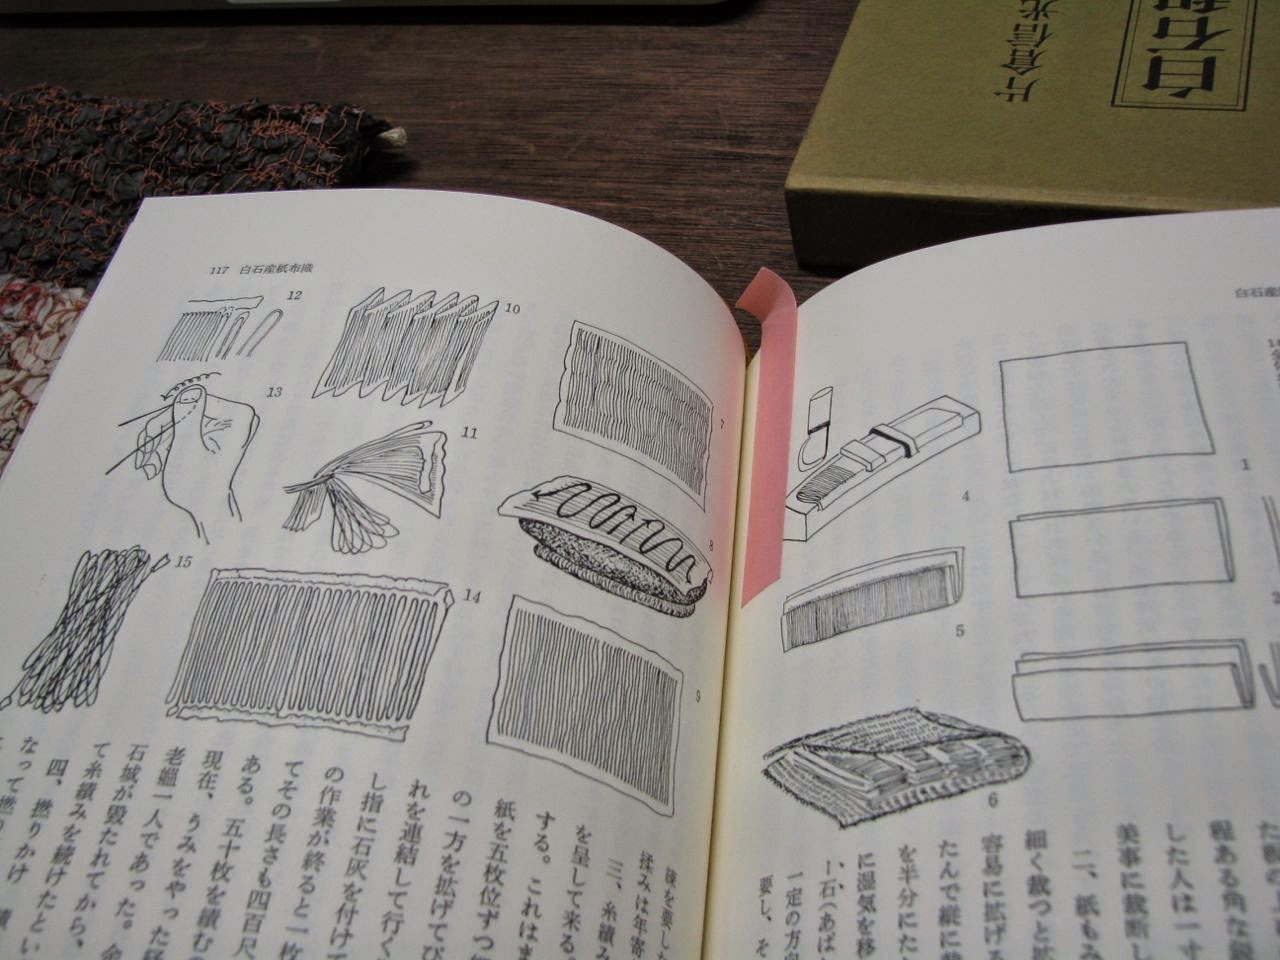 片倉信光
白石和
白石産
1
4
5
6
た
程ある角な
した人は一寸
美事に裁断し
二、紙もみ
細く裁つと
容易に拡げる
たんで縦に
を半分にた
に湿気を移
石(あば
一定の方
要し、そ
117 白石産紙布織
7
8
9
10
11
12
13
14
15
練を要した
揉みは年寄
三、糸績み
を呈して来る
する。これはま
紙を五枚位ずつ
の一方を拡げてび
れを連結して行く
し指に石灰を付けて
の作業が終ると一枚
てその長さも四百尺
ある。五十枚を績む
現在、うみをやった
老媼一人であった。
石城が毀たれてから、
て糸績みを続けたとい
四、撚りかけ
なって撚り